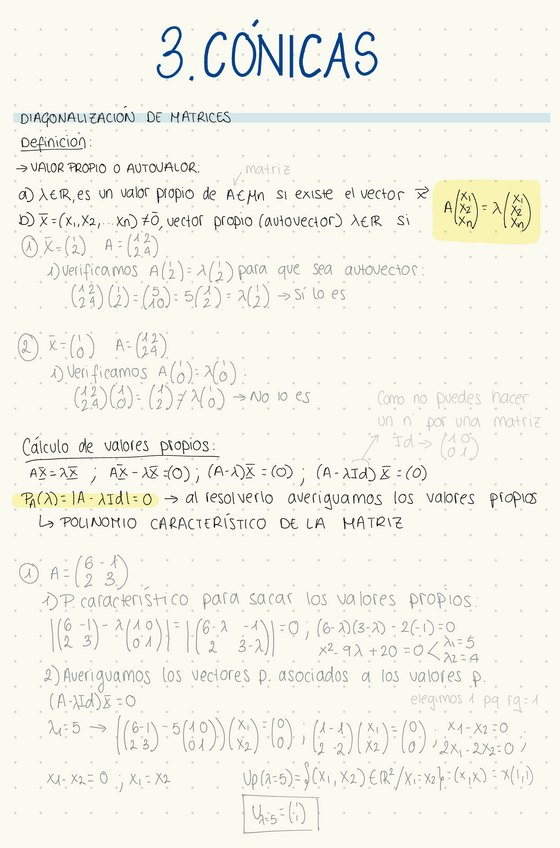 3. CÓNICAS
DIAGONALIZACIÓN DE MATRICES
Definición:
→ VALOR PROPIO O AUTOVALOR:
matriz
a) λ∈ℝ, es un valor propio de A∈Mn si existe el vector x⃗
b) x̄=(x₁,x₂,...xn)≠0̄, vector propio (autovector) λ∈ℝ si
A(x₁ x₂ xn) = λ(x₁ x₂ xn)
① x̄=(1 2) A=(1 2 / 2 4)
1) Verificamos A(1 2)=λ(1 2) para que sea autovector:
(1 2 / 2 4)(1 2)=(5 10)=5(1 2)=λ(1 2) → Sí lo es
② x̄=(1 0) A=(1 2 / 2 4)
1) Verificamos A(1 0)=λ(1 0):
(1 2 / 2 4)(1 0)=(1 2)≠λ(1 0) → No lo es
Como no puedes hacer
un nº por una matriz
Id → (1 0 / 0 1)
Cálculo de valores propios:
Ax̄=λx̄ ; Ax̄-λx̄=(0) ; (A-λ)x̄=(0) ; (A-λId)x̄=(0)
P_A(λ)=|A-λId|=0 → al resolverlo averiguamos los valores propios
↳ POLINOMIO CARACTERÍSTICO DE LA MATRIZ
① A=(6 -1 / 2 3)
1) P. característico para sacar los valores propios:
|(6 -1 / 2 3)-λ(1 0 / 0 1)|=|(6-λ -1 / 2 3-λ)|=0 ; (6-λ)(3-λ)-2(-1)=0
x²-9λ+20=0 < λ₁=5 λ₂=4
2) Averiguamos los vectores p. asociados a los valores p.
(A-λId)x̄=0
elegimos 1 pq rg=1
λ₁=5 → ((6 -1 / 2 3)-5(1 0 / 0 1))(x₁ x₂)=(0 0) ; (1 -1 / 2 -2)(x₁ x₂)=(0 0) ; x₁-x₂=0 2x₁-2x₂=0 ;
x₁-x₂=0 ; x₁=x₂ Up(λ=5)={(x₁,x₂)∈ℝ²/x₁=x₂}=(x,x)=x(1,1)
U_λ=5=(1 1)